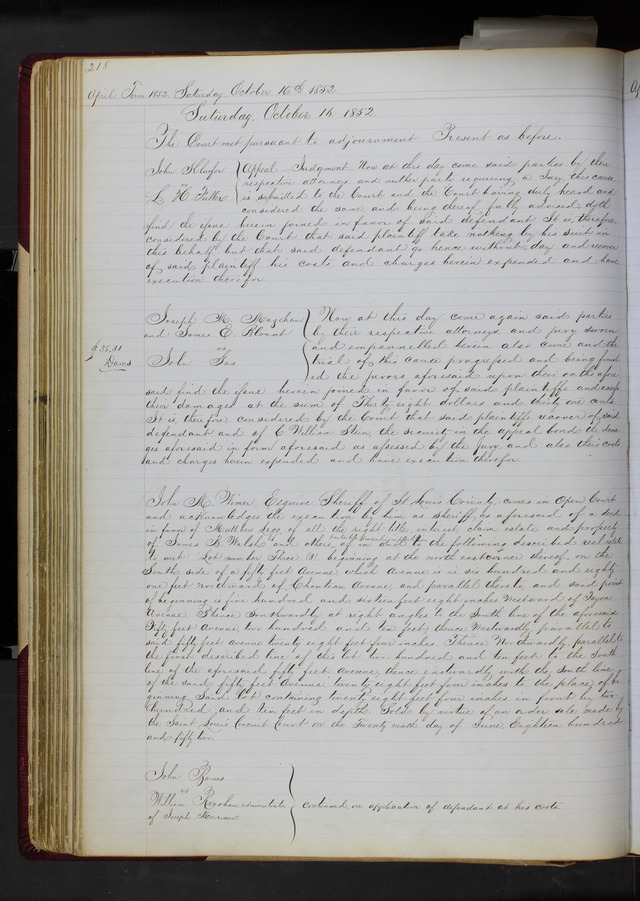 218
April Term 1852. Saturday October 16th 1852
Saturday, October 16. 1852.
The Court met pursuant to adjournment Present as before.
John
vs
L. H. Fuller
Appeal Judgment Now at this day come said parties by their
respective attorneys and neither party requiring a Jury this cause
is submitted to the Court and the Court having duly heard and
considered the same and being thereof fully advised doth
find the issue herein joined in favor of said defendant It is therefore
considered by the Court that said plaintiff take nothing by his suit in
this behalf but that said defendant go hence without day and recover
of said plaintiff his costs and charges herein expended and have
execution therefor.
Joseph M. Magehan
and James E. Blount
vs
John
$38.31
Dam's
Now at this day come again said parties
by their respective attorneys, and jury sworn
and empannelled herein also come and the
trial of this cause progressed and being finish
ed the jurors aforesaid upon their oaths afore
said find the issue herein joined in favor of said plaintiffs and assess
their damages at the sum of Thirty eight dollars and thirty one cents
It is, therefore considered by the Court that said plaintiffs recover of said
defendant and of C. William the security in the appeal bond the dama
ges aforesaid in form aforesaid as assessed by the jury and also their costs
and charges herein expended and have execution therefor
John M. Wimer, Esquire Sheriff of St Louis County, comes in Open Court
and acknowledges the execution by him as sheriff, as aforesaid of a deed
in favor of Matthew Legg of all the right title interest claim estate and property
of Jane B. Walsh and others, of in and to the following described real estate
to wit: Lot number Three (3) beginning at the north east corner thereof on the
South side of a fifty feet Avenue, which Avenue is six hundred and eighty
one feet northward of Chouteau Avenue, and parallel thereto, and said point
of beginning is five hundred and sixteen feet eight inches Westward of Tayon
Avenue Thence Southwardly at right angles to the South line of the aforesaid
Fifty feet Avenue, two hundred and ten feet, thence Westwardly parallel to
said fifty feet avenue twenty eight feet four inches. Thence Northwardly parallel to
the first described line of this lot two hundred and ten feet to the South
line of the aforesaid fifty feet avenue, thence eastwardly with the South line
of the said fifty feet Avenue twenty eight feet four inches to the place of be
ginning Said Lot containing twenty eight feet four inches in front by two
hundred and ten feet in depth Sold by virtue of an order sale made by
the Saint Louis Circuit Court on the Twenty ninth day of June Eighteen hundred
and fifty two.
John Barnes
vs
William Renshaw administrator
of Joseph Morrison
continued on application of defendant at his costs.